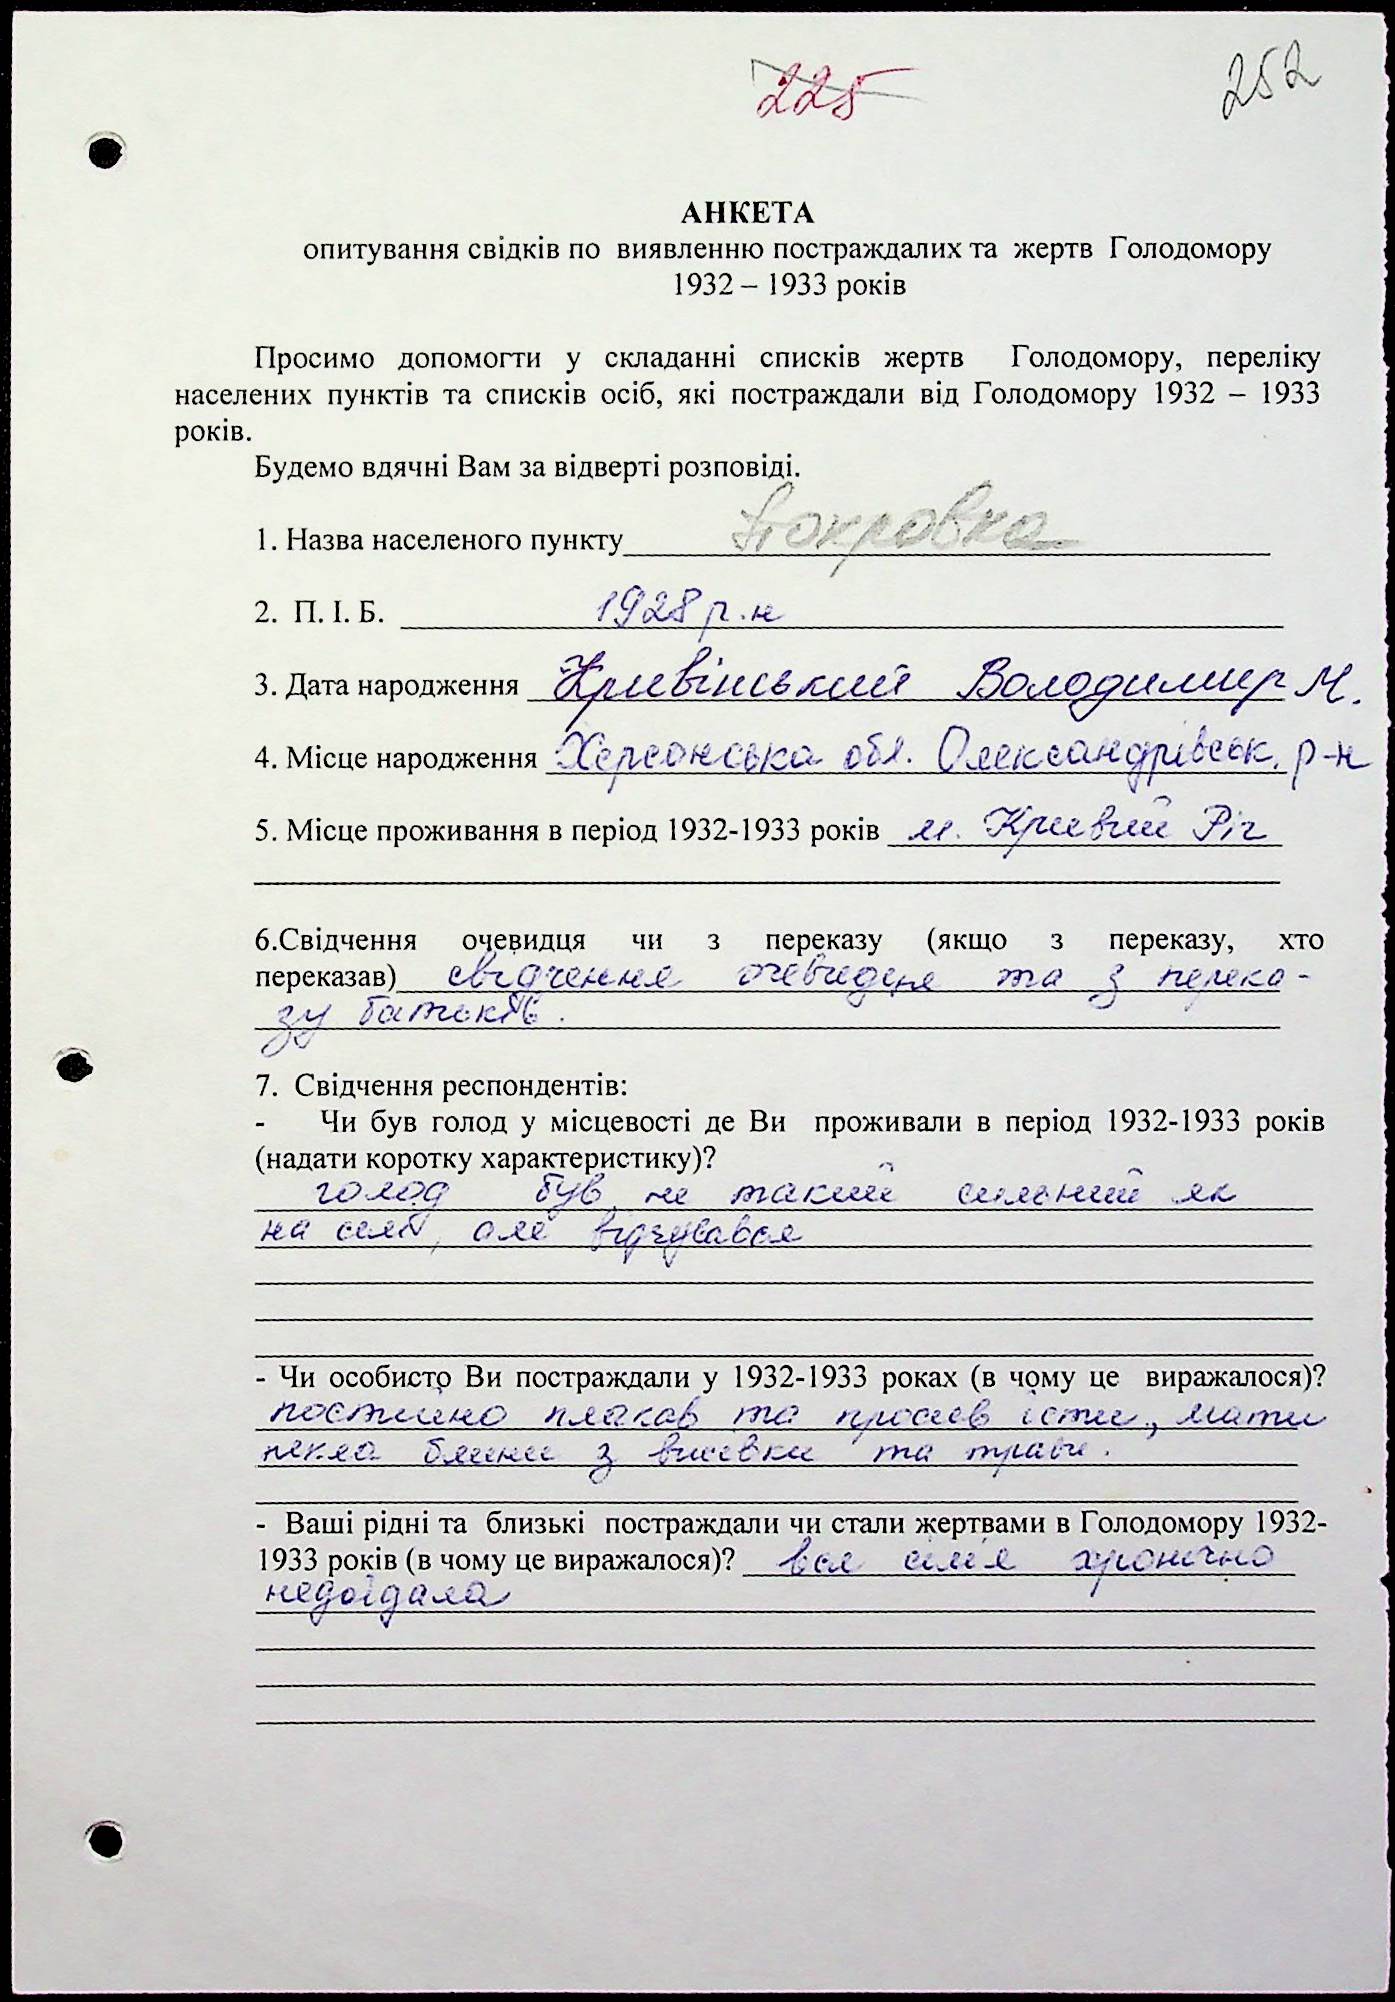 225
252
АНКЕТА
опитування свідків по виявленню постраждалих та жертв Голодомору
1932 – 1933 років
Просимо допомогти у складанні списків жертв Голодомору, переліку
населених пунктів та списків осіб, які постраждали від Голодомору 1932 – 1933
років.
Будемо вдячні Вам за відверті розповіді.
1. Назва населеного пункту Покровка
2. П. І. Б. 1928 р.н
3. Дата народження Кривінський Володимир М.
4. Місце народження Херсонська обл. Олександрівськ. р-н
5. Місце проживання в період 1932-1933 років м. Кривий Ріг
6.Свідчення очевидця чи з переказу (якщо з переказу, хто
переказав) свідчення очевидця та з перека-
зу батьків.
7. Свідчення респондентів:
- Чи був голод у місцевості де Ви проживали в період 1932-1933 років
(надати коротку характеристику)?
голод був не такий сильний як
на селі, але відчувався
- Чи особисто Ви постраждали у 1932-1933 роках (в чому це виражалося)?
постійно плакав та просив їсти, мати
пекла блини з висівки та трави.
- Ваші рідні та близькі постраждали чи стали жертвами в Голодомору 1932-
1933 років (в чому це виражалося)? вся сім'я хронічно
недоїдала